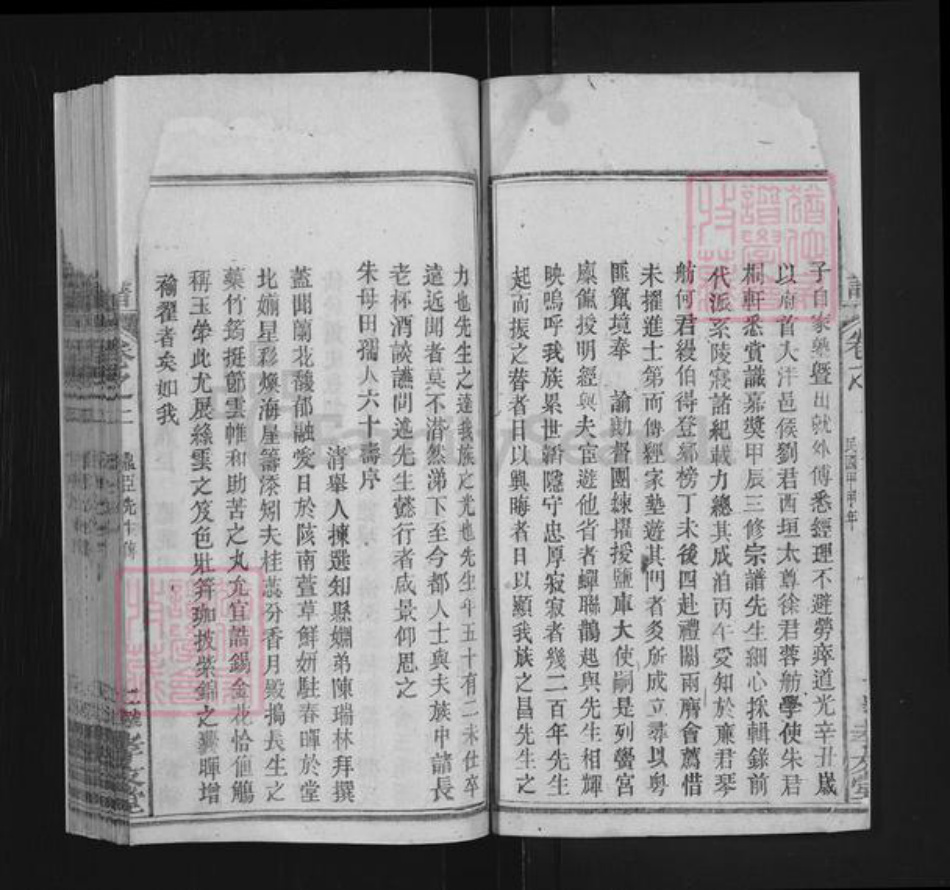 子自家藥曁出就外傅悉經理不避勞瘁道光辛丑歲
以府首入泮邑侯劉君酉垣太尊徐君蓉舫學使朱君
桐軒悉賞識嘉獎甲辰三修宗譜先生細心採輯錄前
代派系陵寢諸紀載力總其成洎丙午受知於亷君琴
舫何君緩伯得登鄉榜丁未後四赴禮闈兩膺會薦惜
未擢進士第而傳經家塾遊其門者灸所成立尋以粵
匪竄境奉 諭勸督團練擢授鹽庫大使嗣是列黌宮
廩餼授明經與夫宦遊他省者蟬聯鵲起與先生相輝
映嗚呼我族累世潛隱守忠厚寂寂者幾二百年先生
起而振之昔者日以興晦者日以顯我族之昌先生之
力也先生之達我族之光也先生年五十有二未仕卒
遠近聞者莫不潸然涕下至今都人士與夫族中諸長
老杯酒談讌間述先生懿行者咸景仰思之
朱母田孺人六十壽序
清舉人揀選知縣姻弟陳瑞林拜撰
蓋聞蘭花馥郁融愛日於陔南萱草鮮妍駐春暉於堂
北嫡星彩煥海屋籌添矧夫桂蕊分香月殿搗長生之
藥竹筠挺節雲帷和助苦之丸尤宜誥錫金花恰催觴
稱玉斝此尤展綠雲之笈色壯筓珈披紫錦之囊暉增
褕翟者矣如我
卷之
民國甲申年
卷之二